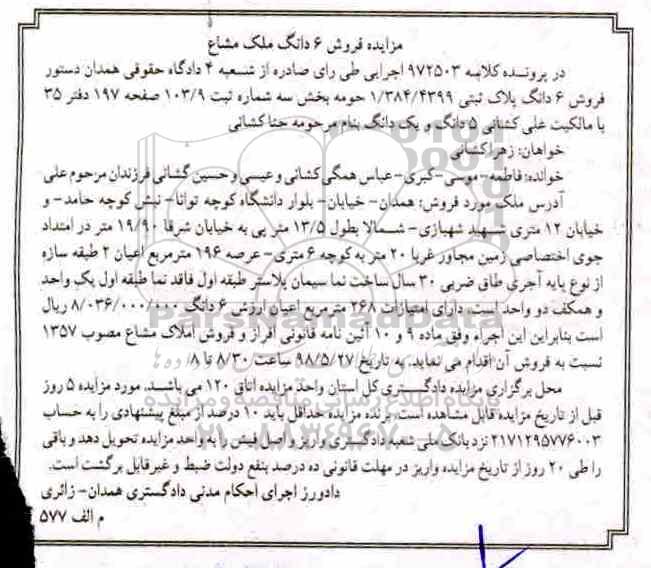 مزایده فروش ۶ دانگ ملک مشاع
در پرونده کلاسه ۹۷۲۵۰۳ اجرایی طی رای صادره از شعبه ۴ دادگاه حقوقی همدان دستور
فروش ۶ دانگ پلاک ثبتی ۱/۳۸۴/۴۳۹۹ حومه بخش سه شماره ثبت ۱۰۳/۹ صفحه ۱۹۷ دفتر ۳۵
با مالکیت علی کشانی ۵ دانگ و یک دانگ بنام مرحومه حنا کشانی
خواهان: زهرا کشانی
خوانده: فاطمه-موسی-کبری-عباس همگی کشانی و عیسی و حسین گشانی فرزندان مرحوم علی
آدرس ملک مورد فروش: همدان- خیابان- بلوار دانشگاه کوچه توانا- نبش کوچه حامد- و
خیابان ۱۲ متری شهید شهبازی- شمالا بطول ۱۳/۵ متر پی به خیابان شرقا ۱۹/۹۰ متر در امتداد
جوی اختصاصی زمین مجاور غربا ۲۰ متر به کوچه ۶ متری- عرصه ۱۹۶ مترمربع اعیان ۲ طبقه سازه
از نوع پایه آجری طاق ضربی ۳۰ سال ساخت نما سیمان پلاستر طبقه اول فاقد نما طبقه اول یک واحد
و همکف دو واحد است. دارای امتیازات ۲۶۸ مترمربع اعیان ارزش ۶ دانگ ۸/۰۳۶/۰۰۰/۰۰۰ ریال
است بنابراین این اجراء وفق ماده ۹ و ۱۰ آئین نامه قانونی افراز و فروش املاک مشاع مصوب ۱۳۵۷
نسبت به فروش آن اقدام می نماید. به تاریخ ۹۸/۵/۲۷ ساعت ۸/۳۰ تا ۸
محل برگزاری مزایده دادگستری کل استان واحد مزایده اتاق ۱۲۰ می باشد. مورد مزایده ۵ روز
قبل از تاریخ مزایده قابل مشاهده است. برنده مزایده حداقل باید ۱۰ درصد از مبلغ پیشنهادی را به حساب
۲۱۷۱۲۹۵۷۷۶۰۰۳ نزد بانک ملی شعبه دادگستری واریز و اصل فیش را به واحد مزایده تحویل دهد و باقی
را طی ۲۰ روز از تاریخ مزایده واریز در مهلت قانونی ده درصد بنفع دولت ضبط و غیرقابل برگشت است.
دادورز اجرای احکام مدنی دادگستری همدان- زائری
م الف ۵۷۷
ParsNamadData
پایگاه اطلاع رسانی مناقصه و مزایده
۰۲۱-۸۸۳۴۹۶۷۰-۵